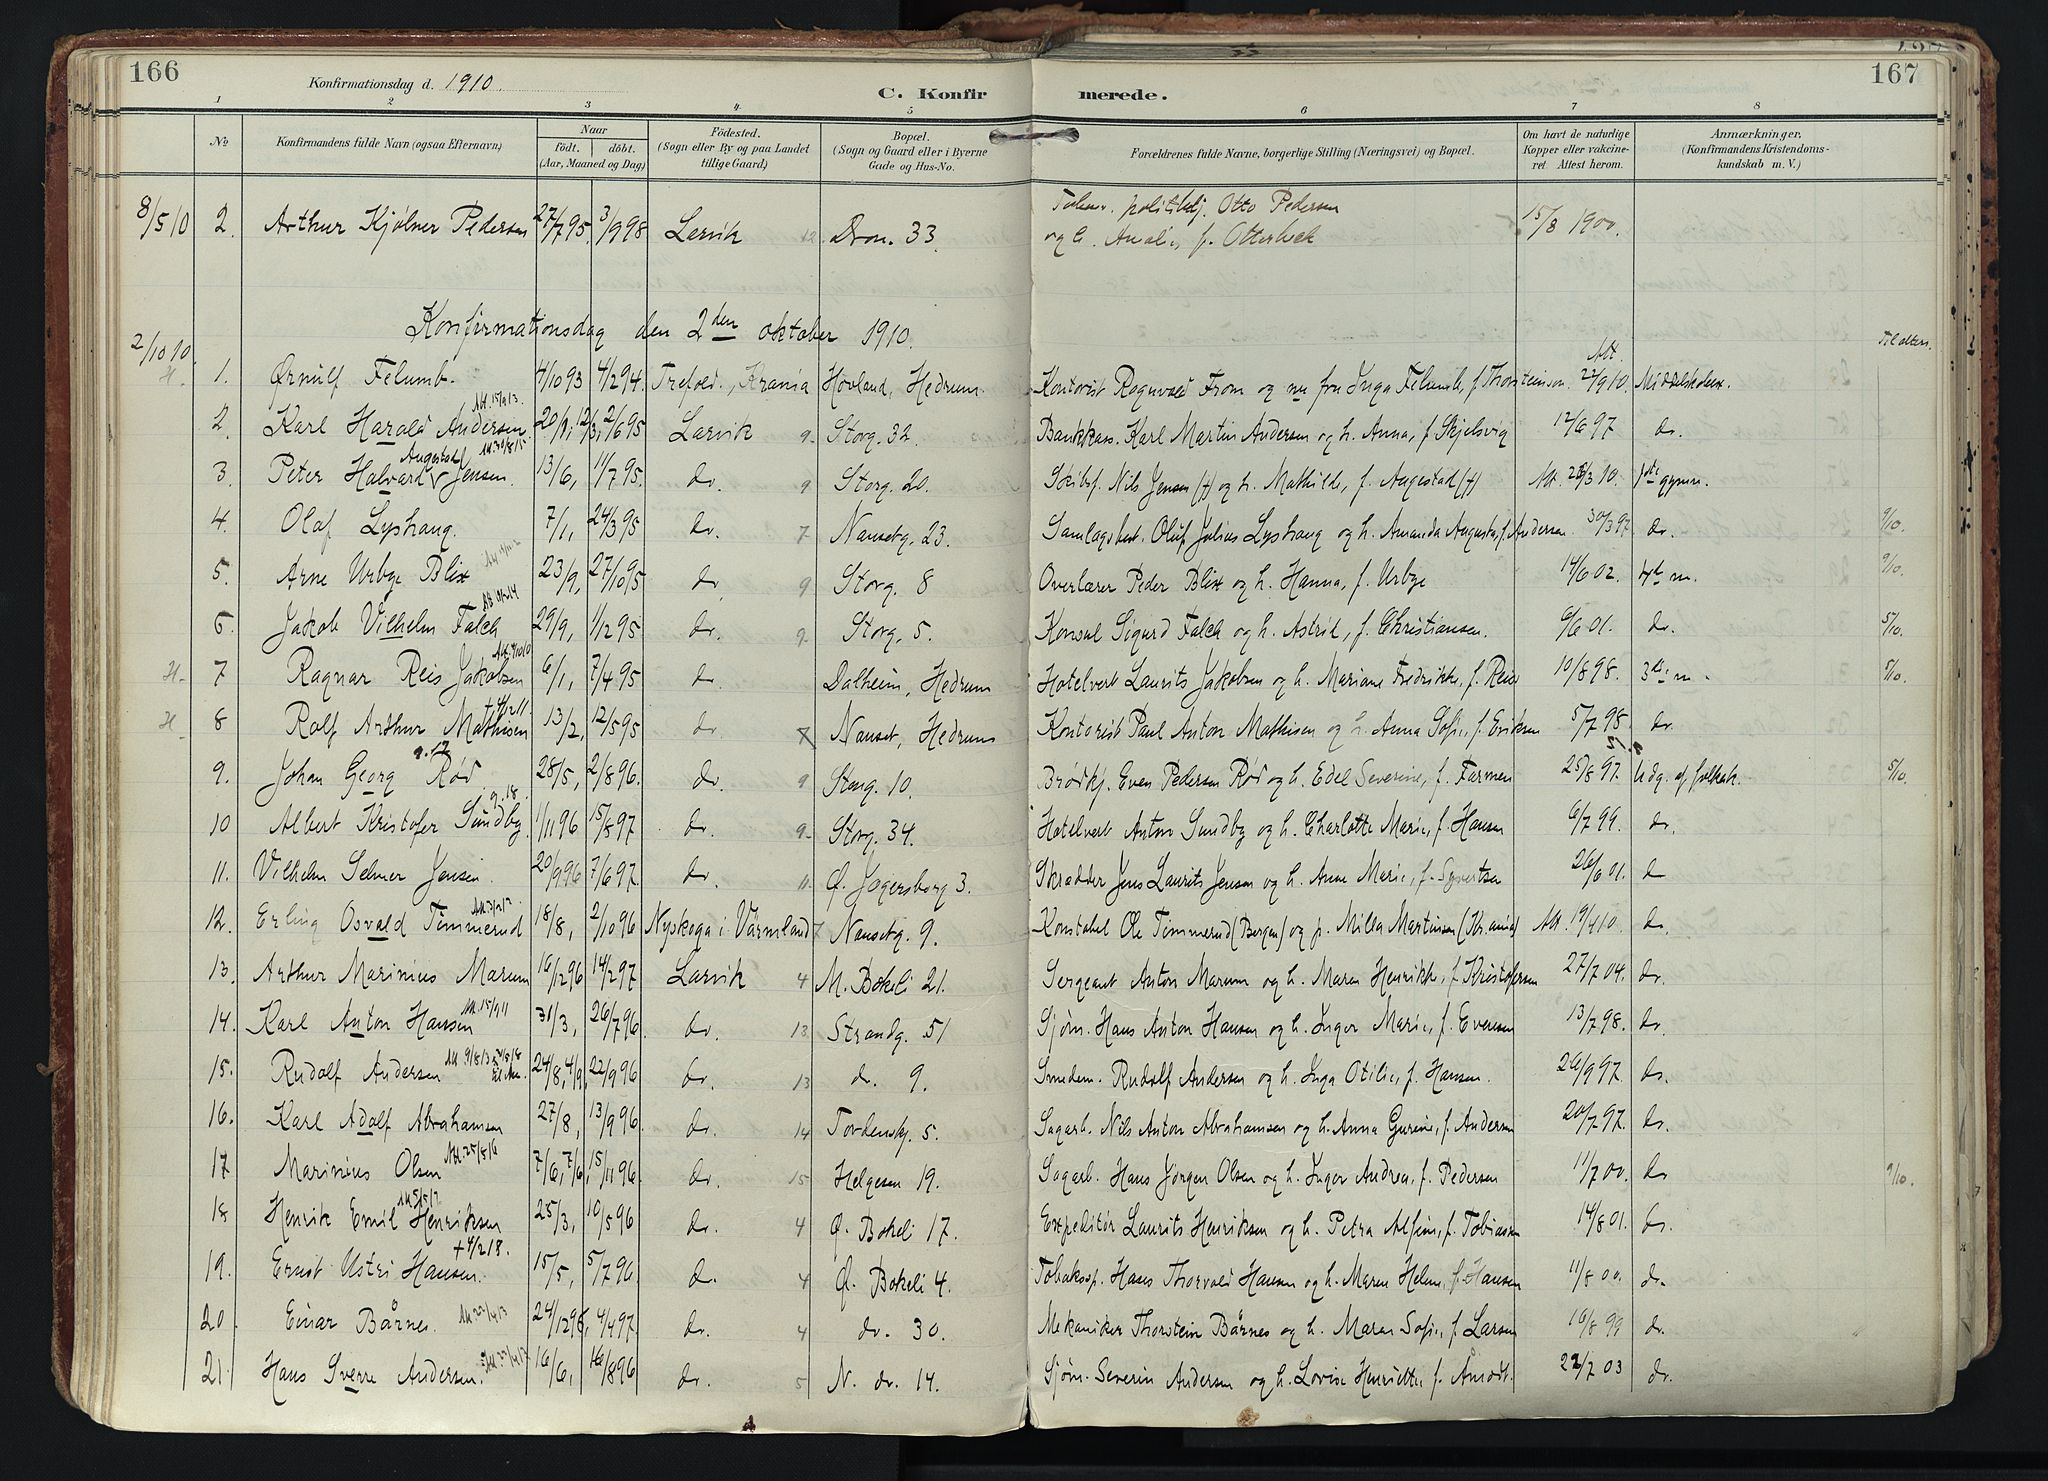 166
Konfirmationsdag d. 1910.
C. Konfirmerede.
167
1 2 3 4 5 6 7 8
No
Konfirmandens fulde Navn (ogsaa Efternavn)
Naar
födt. döbt.
(Aar, Maaned og Dag)
Födested.
(Sogn eller By og paa Landet
tillige Gaard)
Bopæl.
(Sogn og Gaard eller i Byerne
Gade og Hus-No.
Forældrenes fulde Navne, borgerlige Stilling (Næringsvei) og Bopæl.
Om havt de naturlige
Kopper eller vakcine-
ret. Attest herom.
Anmærkninger.
(Konfirmandens Kristendoms-
kundskab m. V.)
8/5 10 2. Arthur Kjølner Pedersen 27/7 95. 3/9 98 Larvik 12 Dron. 33. politibtj. Otto Pedersen og h. Amalie, f. Otterbeck 15/8 1900.
Konfirmationsdag den 2den oktober 1910.
2/10 10 Til alters.
H. 1. Ørnulf Felumb. 4/10 93 4/2 94. Trefold., Krania Hovland, Hedrum Kontorist Ragnvald From og nu fru Inga Felumb, f. Thorsteinson. Att. 27/9 10. Middelskoleex.
2. Karl Harald Andersen Att. 15/9 13. 20/1, 12/3, 2/6 95 Larvik 9. Storg. 32. Bankkass. Karl Martin Andersen og h. Anna, f. Skjelsvig 12/6 97 do.
3. Peter Halvard Augestad Jensen. Att. 30/8 15 13/6, 11/7 95. do. 9 Storg. 20. Skibsf. Nils Jensen (†) og h. Mathilde, f. Augestad (†) Att. 23/3 10. 1ste gymn.
4. Olaf Lyshaug. 7/1, 24/3 95 do. 7 Nansetg. 23. Samlagsbest. Oluf Julius Lyshaug og h. Amanda Augusta, f. Andersen 30/3 97 do. 9/10.
5. Arne Urbye Blix 23/9, 27/10 95 do. 9 Storg. 8 Overlærer Peder Blix og h. Hanna, f. Urbye 14/6 02. 4de m. 9/10.
6. Jakob Vilhelm Falck 29/9, 1/12 95 do. 9. Storg. 5. Konsul Sigurd Falck og h. Astrid, f. Christiansen. 6/6 01. do. 5/10.
H. 7 Ragnar Reis Jakobsen Att. 4/10 10 6/1, 7/4 95 do. Dalheim, Hedrum Hotelvert Laurits Jakobsen og h. Mariane Fredrikke, f. Reis 10/8 98. 3die m. 5/10.
H. 8 Rolf Arthur Mathisen † 4/12 11. 13/2, 12/5 95 do 7 Nanset, Hedrum Kontorist Paul Anton Mathisen og h. Anna Sofie, f. Eriksen 5/7 98. do.
9. Johan Georg Rød 9.19 28/5, 2/8 96. do. 9 Storg. 10. Brødkj. Even Pedersen Rød og h. Edel Severine, f. Farmen 25/8 97. Udg. af folkesk. 5/10
10 Albert Kristofer Sundby 9.18 1/11 96 15/8 97 do. 9. Storg. 34. Hotelvert Anton Sundby og h. Charlotte Marie, f. Hansen 6/7 99. do.
11. Vilhelm Selmer Jensen. 20/9 96 7/6 97. do. 11. Ø. Jegersborg 3. Skrædder Jens Laurits Jensen og h. Anne Marie, f. Syvertsen 26/6 01. do
12. Erling Osvald Timmerud 18/8, 2/10 96 Nyskoga i Värmland 7 Nansetg. 9. Konstabel Ole Timmerud (Bergen) og p. Milla Martinsen (Kr.ania) Att. 19/4 10. do.
13. Arthur Marinius Marum 16/12 96 14/2 97 Larvik 4 M. Bøkeli 21. Sergeant Anton Marum og h. Maren Henrikke, f. Kristofersen 27/7 04. do.
14. Karl Anton Hansen Att. 15/9 11 31/3, 26/7 96 do. 13. Strandg. 51 Sjøm. Hans Anton Hansen og h. Inger Marie, f. Evensen 13/7 98. do.
15. Rudolf Andersen Att. 9/8 13 24/8, 4/9, 22/9 96 do. 13 do. 9. Smedem. Rudolf Andersen og h. Inga Otilie, f. Hansen. 26/9 97. do.
16. Karl Adolf Abrahamsen 27/8, 13/9 96 do. 14 Tordenskj. 5. Sagarb. Nils Anton Abrahamsen og h. Anna Gurine, f. Andersen 20/7 97. do.
17 Marinius Olsen Att. 25/8 16 7/6, 7/6, 15/11 96. do. 15 Helgesen 19. Sagarb. Hans Jørgen Olsen og h. Inger Andrea, f. Pedersen 11/7 00. do 9/10.
18 Henrik Emil Henriksen 25/3, 10/5 96 do. 4 Ø. Bøkeli 17. Expeditør Laurits Henriksen og h. Petra Alfine, f. Tobiassen 14/8 01. do.
19. Ernst Ustri Hansen. † 4/2 18. 15/5, 5/7 96 do. 4 Ø. Bøkeli 4. Tobakssp. Hans Thorvald Hansen og h. Maren Helene, f. Hansen 11/8 00. do.
20. Einar Bårnes. 24/12 96, 4/4 97. do. 4 do. 30. Mekaniker Thorstein Bårnes og h. Maren Sofie, f. Larsen 16/8 99 do.
21. Hans Sverre Andersen. 16/6, 16/8 96 do. 5 N. do. 14. Sjøm. Severin Andersen og h. Lovise Henriette, f. Amodt. 22/7 03 do.